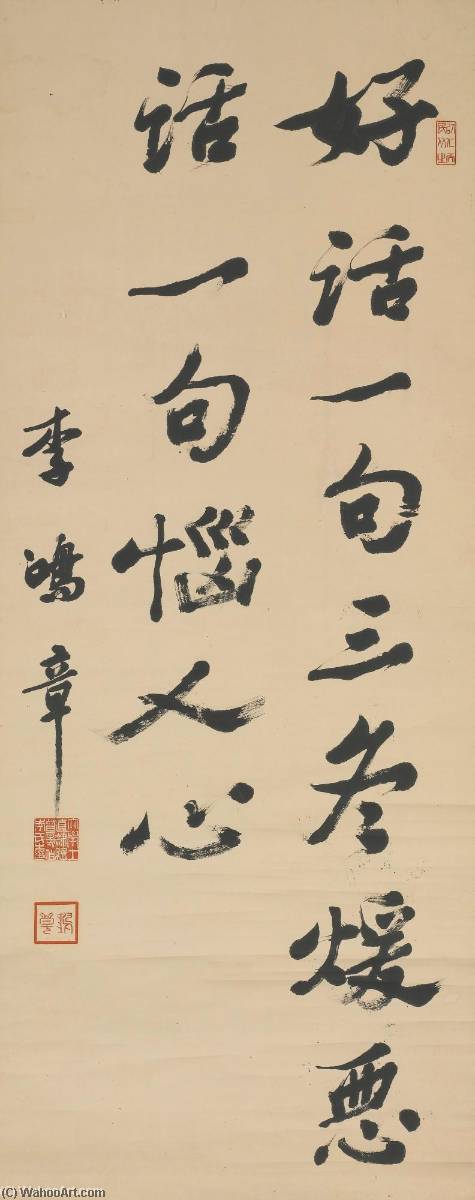 好話一句三冬煖惡
話一句惱人心
李鴻章
(C) WahooArt.com